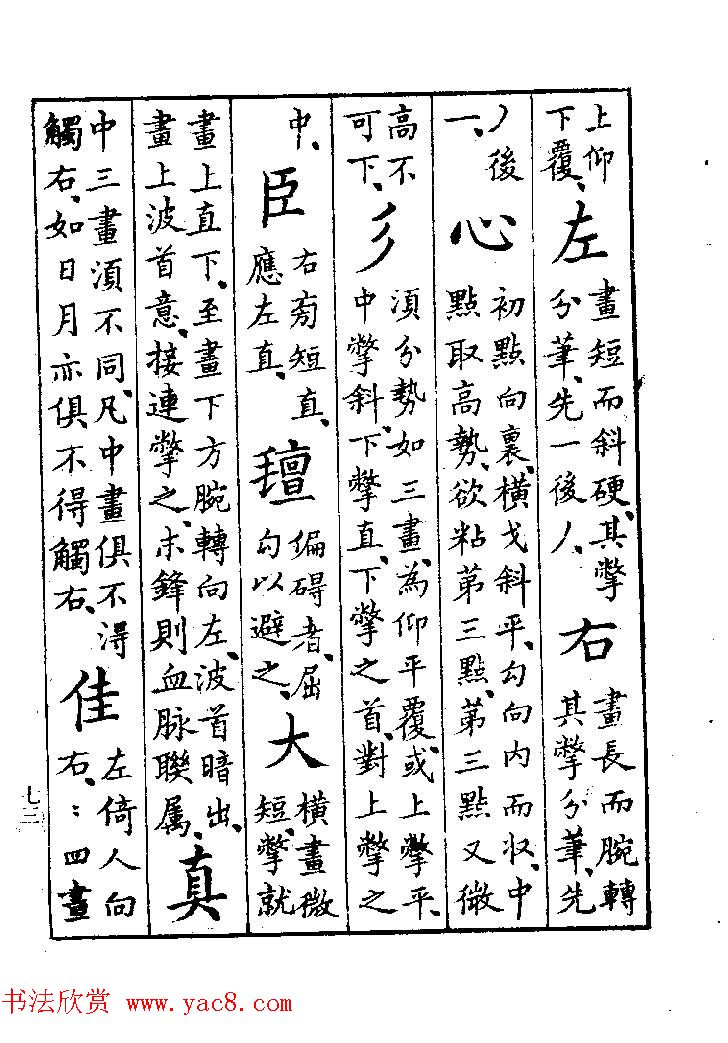 上仰
下覆、
左
畫短而斜硬、其撆
分筆、先一後丿、
右
畫長而腕轉
其撆分筆、先
丿後
一、
心
初點向裏、橫戈斜平、勾向内而収、中
點取高勢、欲粘第三點、第三點又微
高不
可下、
彡
須分勢如三畫、為仰平覆、或上撆平、
中撆斜、下撆直、下撆之首、對上撆之
中、
臣
右旁短直、
應左直、
氊
偏碍者、屈
勾以避之、
大
橫畫微
短、撆就
畫上直下、至畫下方腕轉向左、波首暗出、
畫上波首意、接連撆之、末鋒則血脉聯属、
真
中三畫須不同、凡中畫俱不得
觸右、如日月亦俱不得觸右、
佳
左倚人向
右、：四畫
七三
书法欣赏 www.yac8.com